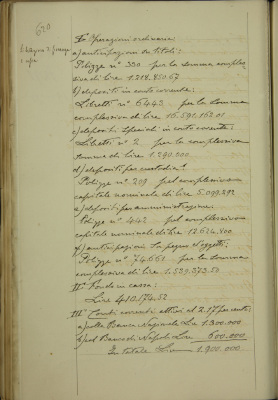 620
I° Operazioni ordinarie:
a) anticipazione su titoli:
Polizze n° 330 per la somma comples-
siva di lire 1.218.850.67
b) depositi in conto corrente:
Libretti n° 6443 per la somma
complessiva di lire 16.590.162.01
c) depositi speciali in conto corrente:
Libretti n° 2 per la complessiva
somma di lire 1.240.000
d) depositi per custodia:
Polizze n° 209 pel complessivo
capitale nominale di lire 5.099.292
e) depositi per amministrazione:
Polizze n° 442 pel complessivo
capitale nominale di lire 12.624.800
f) anticipazioni su pegno d'oggetti:
Polizze n° 74661 per la somma
complessiva di lire 1.539.373.50
II° Fondo in cassa:
Lire 410.174.52
III° Conti correnti attivi al 2.17 per cento:
a) colla Banca Nazionale Lire 1.300.000
b) col Banco di Napoli Lire 600.000
In totale Lire 1.900.000